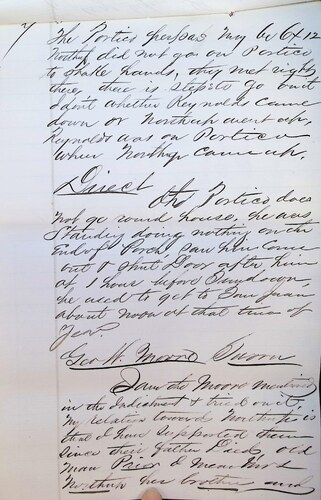 7
The Portico perhaps may be 6x12
Northup did not go on Portico
to shake hands, they met right
there, there is steps to go but
don't whether Reynolds came
down or Northup went up,
Reynolds was on Portico
when Northup came up.
Direct
The Portico does
not go round house, he was
standing doing nothing on the
End of Porch, saw him come
out & shut Door after him
at 1 hours before Sundown,
he used to get to San Juan
about noon at that time of
Year.
Geo. W. Moore Sworn
I am the Moore mentioned
in the Indictment & tried on it,
my relation toward Northup is
that I have supported them
since their father Died, old
man Prior I mean Mrs
Northup her brother and